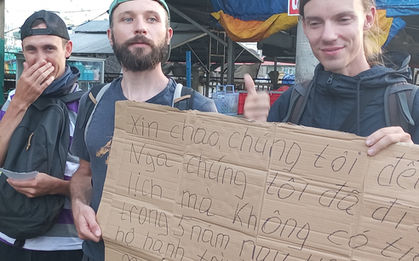 Xin chào, chúng tôi đế
Nga, chúng tôi đã đi
lịch mà không có ti
trong 5 năm
bộ hành